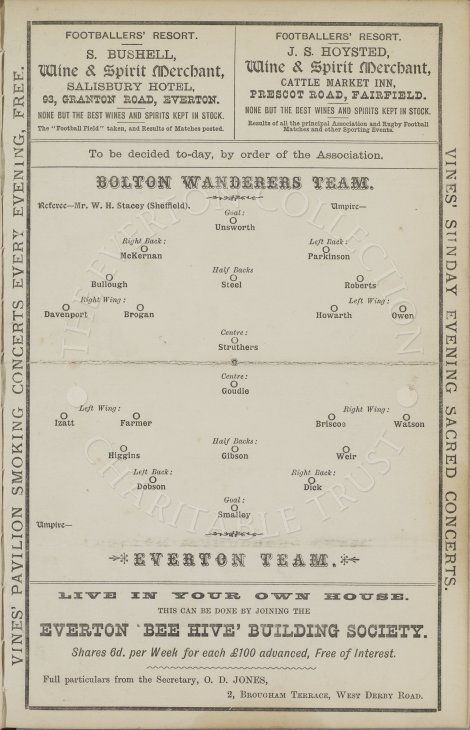 VINES' PAVILION SMOKING CONCERTS EVERY EVENING, FREE.
FOOTBALLERS' RESORT.
S. BUSHELL,
Wine & Spirit Merchant,
SALISBURY HOTEL,
93, GRANTON ROAD, EVERTON.
NONE BUT THE BEST WINES AND SPIRITS KEPT IN STOCK.
The "Football Field" taken, and Results of Matches posted.
FOOTBALLERS' RESORT.
J. S. HOYSTED,
Wine & Spirit Merchant,
CATTLE MARKET INN,
PRESCOT ROAD, FAIRFIELD.
NONE BUT THE BEST WINES AND SPIRITS KEPT IN STOCK.
Results of all the principal Association and Rugby Football
Matches and other Sporting Events.
To be decided to-day, by order of the Association.
BOLTON WANDERERS TEAM.
Referee—Mr. W. H. Stacey (Sheffield). Umpire—
Goal:
Unsworth
Right Back: Left Back:
McKernan Parkinson
Half Backs
Bullough Steel Roberts
Right Wing: Left Wing:
Davenport Brogan Howarth Owen
Centre:
Struthers
Centre:
Goudie
Left Wing: Right Wing:
Izatt Farmer Briscoe Watson
Half Backs:
Higgins Gibson Weir
Left Back: Right Back:
Dobson Dick
Goal:
Smalley
Umpire—
EVERTON TEAM.
LIVE IN YOUR OWN HOUSE.
THIS CAN BE DONE BY JOINING THE
EVERTON 'BEE HIVE' BUILDING SOCIETY.
Shares 6d. per Week for each £100 advanced, Free of Interest.
Full particulars from the Secretary, O. D. JONES,
2, BROUGHAM TERRACE, WEST DERBY ROAD.
VINES' SUNDAY EVENING SACRED CONCERTS.
THE EVERTON COLLECTION
CHARITABLE TRUST